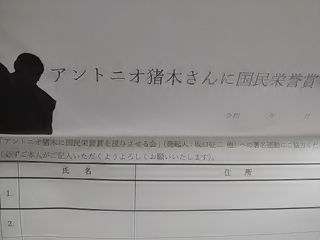 アントニオ猪木さんに国民栄誉賞
令和 年 月
「アントニオ猪木に国民栄誉賞を授与させる会」(発起人:坂口征二 他)への署名運動にご協力くだ
(必ずご本人がご記入いただくようよろしくお願いいたします)。
氏 名 住 所
1.
2.